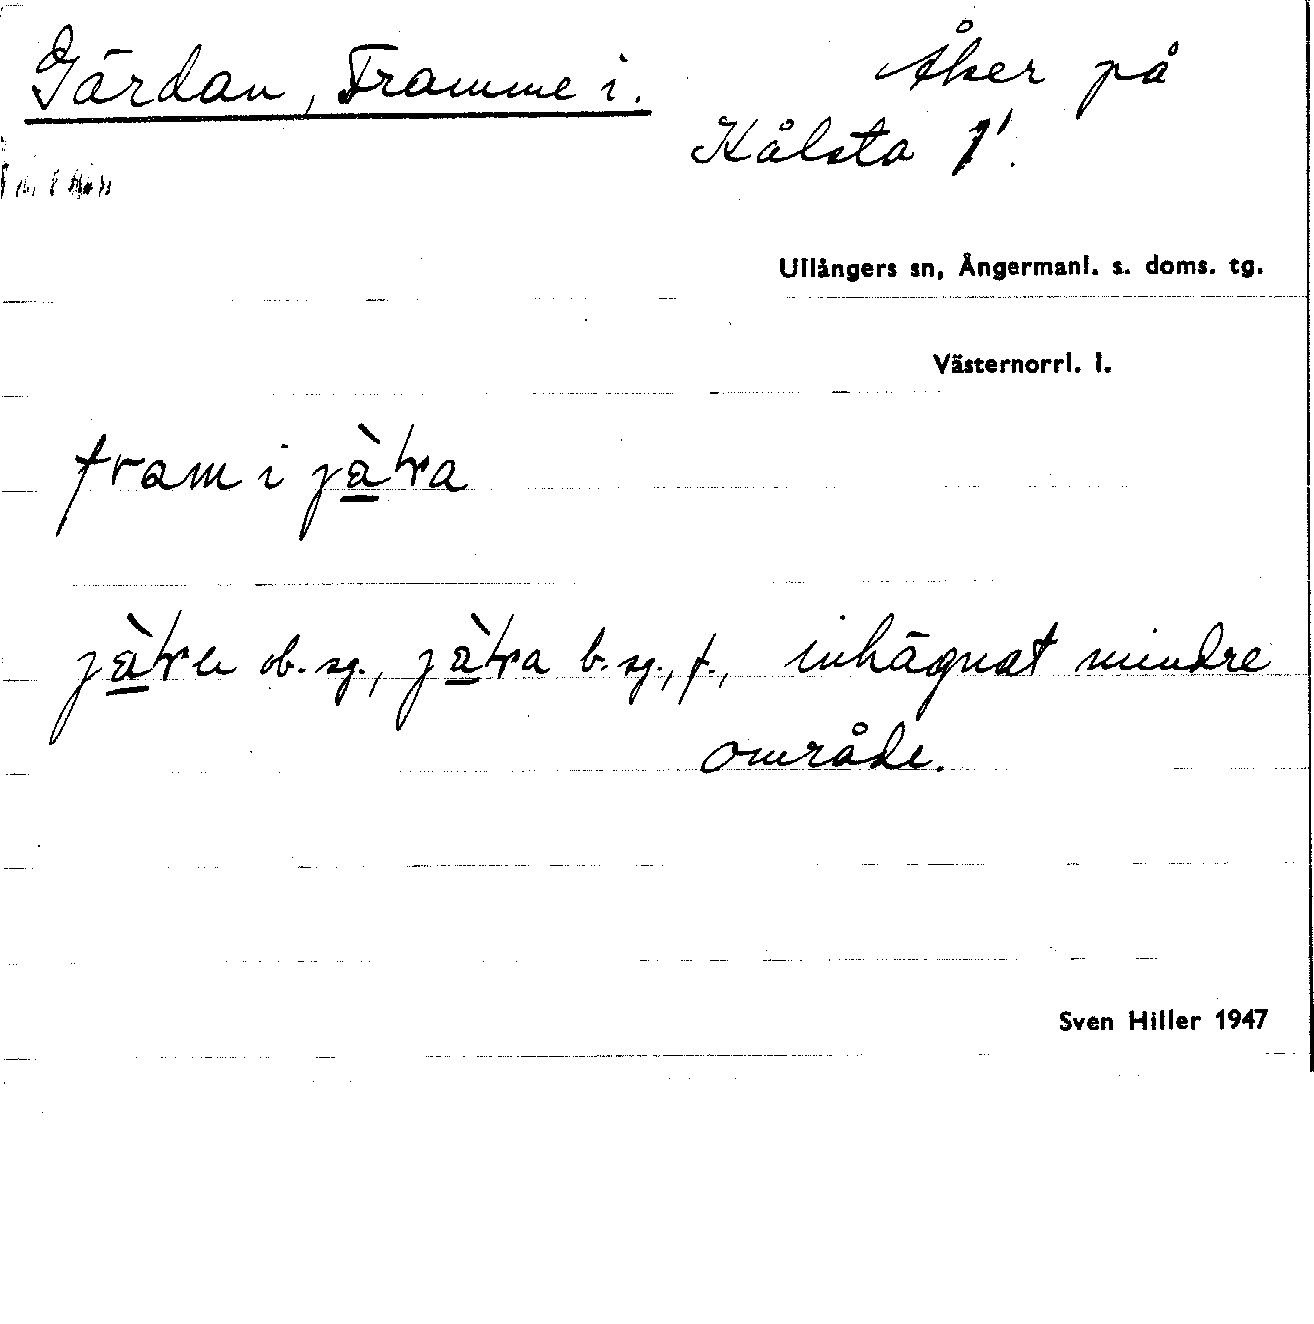 Gärdan, Framme i.
Åker på
Kålsta 1¹.
Ullångers sn, Ångermanl. s. doms. tg.
Västernorrl. l.
fram i
ob. sg., b. sg., f., inhägnat mindre
område.
Sven Hiller 1947